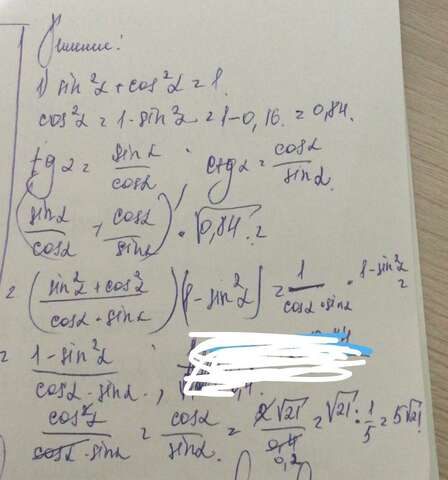 Решение:
1) sin²α + cos²α = 1.
cos²α = 1 - sin²α = 1 - 0,16 = 0,84.
tgα = sinα/cosα ; ctgα = cosα/sinα.
(sinα/cosα + cosα/sinα) · √0,84 =
= (sin²α + cos²α / cosα · sinα)(1 - sin²α) = 1/cosα · sinα · 1 - sin²α =
= 1 - sin²α / cosα · sinα ,
cos²α / cosα · sinα = cosα/sinα = 2√21 / 0,4 0,2 = √21 · 1/5 = 5√21